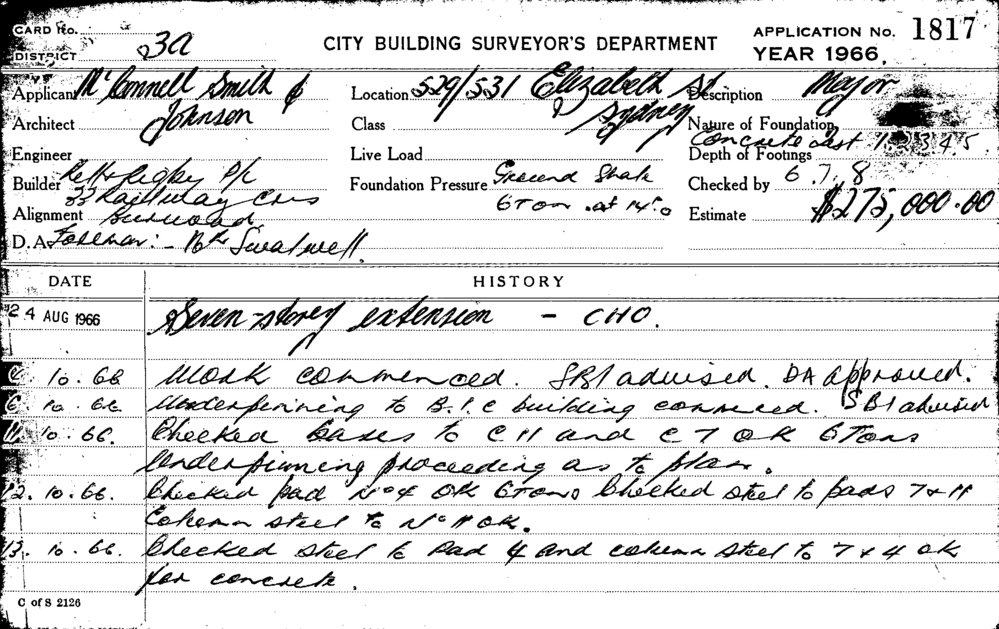 CARD No.
DISTRICT 23A
CITY BUILDING SURVEYOR'S DEPARTMENT
APPLICATION No. 1817
YEAR 1966.
Applicant McConnell Smith &
Johnson
Architect
Engineer
Builder Kell & Rigby P/L
33 Railway Cres
Alignment Burwood
D.A. Foreman:- Mr Swalwell.
Location 529/531 Elizabeth St
Sydney
Class
Live Load
Foundation Pressure Ground Shale
6 Ton at 14'.0
Description Major
Nature of Foundation
Concrete cast 1.2.3.4.5.
Depth of Footings
Checked by 6.7.8
Estimate $275,000.00
DATE HISTORY
24 AUG 1966 Seven-storey extension - CHO.
10.66 Work commenced. SBI advised. DA approved.
6.10.66 Underpinning to B.I.C building commenced. SBI advised
11.10.66. Checked bases to C11 and C7 OK 6 Tons
Underpinning proceeding as to plan.
12.10.66. Checked pad No 4 OK 6 Tons Checked steel to pads 7 & 11
Column steel to No 11 OK.
13.10.66. Checked steel to Pad 4 and column steel to 7 & 4 ok
for concrete.
C of S 2126